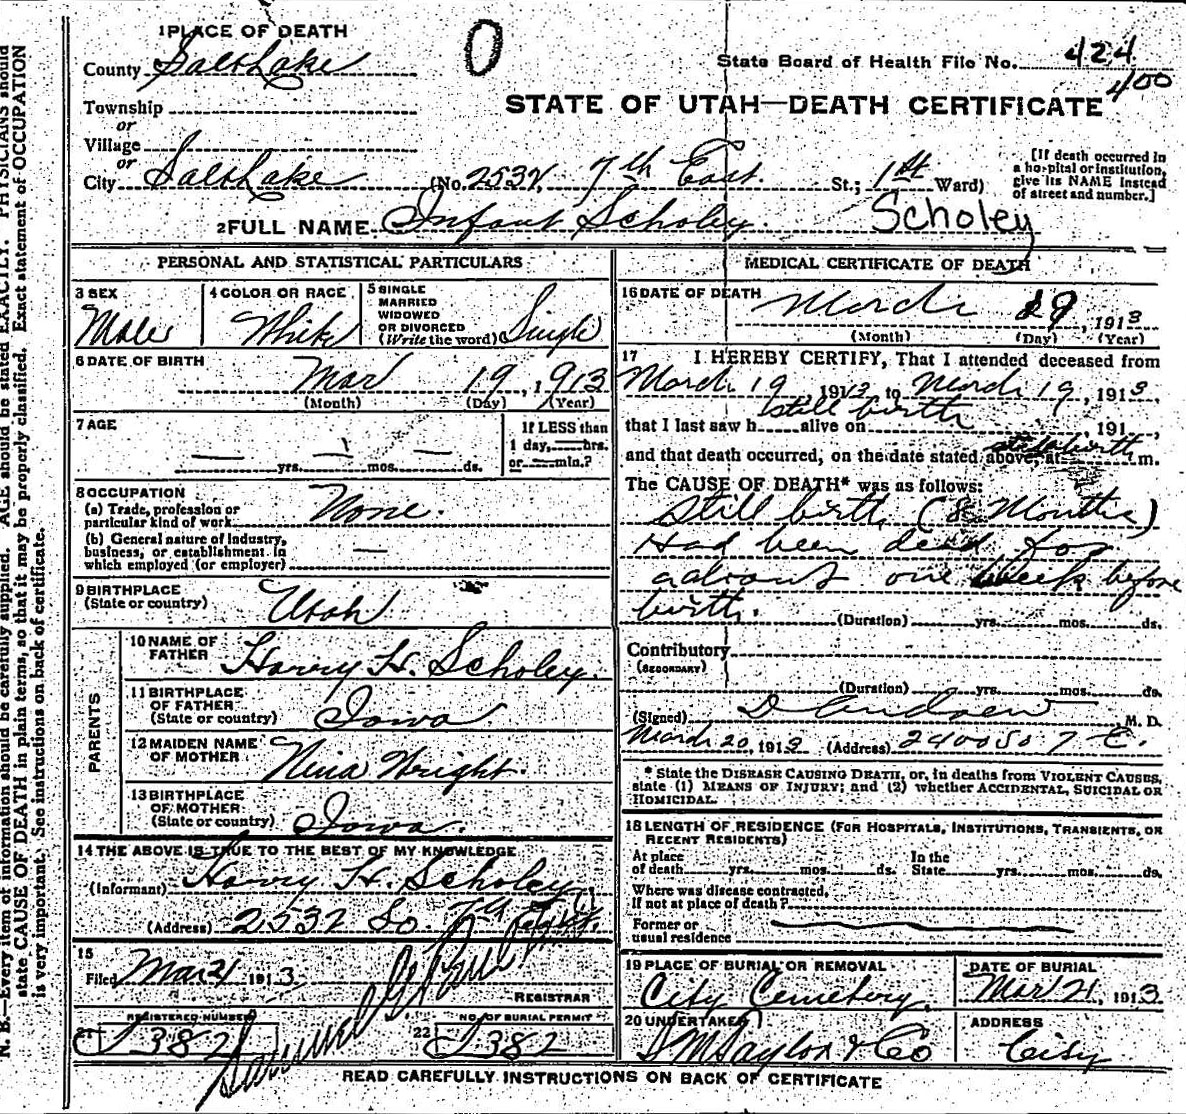 1 PLACE OF DEATH
County Salt Lake
Township
or
Village
or
City Salt Lake (No. 2532 7th East St.; 1st Ward)
State Board of Health File No. 424
400
STATE OF UTAH—DEATH CERTIFICATE
[If death occurred in
a hospital or institution,
give its NAME instead
of street and number.]
2 FULL NAME Infant Scholey Scholey
PERSONAL AND STATISTICAL PARTICULARS
3 SEX
Male
4 COLOR OR RACE
White
5 SINGLE
MARRIED
WIDOWED
OR DIVORCED
(Write the word) Single
6 DATE OF BIRTH
Mar 19, 1913
(Month) (Day) (Year)
7 AGE
— yrs. — mos. — ds.
If LESS than
1 day, — hrs.
or — min.?
8 OCCUPATION
(a) Trade, profession or
particular kind of work None
(b) General nature of industry,
business, or establishment in
which employed (or employer) —
9 BIRTHPLACE
(State or country) Utah
PARENTS
10 NAME OF
FATHER Harry H. Scholey.
11 BIRTHPLACE
OF FATHER
(State or country) Iowa
12 MAIDEN NAME
OF MOTHER Nina Wright.
13 BIRTHPLACE
OF MOTHER
(State or country) Iowa.
14 THE ABOVE IS TRUE TO THE BEST OF MY KNOWLEDGE
(Informant) Harry H. Scholey
(Address) 2532 So. 7th East.
15
Filed Mar 21 1913.
REGISTRAR
REGISTERED NUMBER
21 382
NO. OF BURIAL PERMIT
22 382
MEDICAL CERTIFICATE OF DEATH
16 DATE OF DEATH
March 19, 1913
(Month) (Day) (Year)
17 I HEREBY CERTIFY, That I attended deceased from
March 19 1913 to March 19, 1913,
still birth
that I last saw h alive on , 191 ,
and that death occurred, on the date stated above, at m.
The CAUSE OF DEATH* was as follows:
Still birth (8 Months)
Had been dead for
about one week before
birth.
(Duration) yrs. mos. ds.
Contributory
(SECONDARY)
(Duration) yrs. mos. ds.
(Signed) , M. D.
March 20, 1913 (Address) 2400 So 7 E.
* State the DISEASE CAUSING DEATH, or, in deaths from VIOLENT CAUSES,
state (1) MEANS OF INJURY; and (2) whether ACCIDENTAL, SUICIDAL OR
HOMICIDAL.
18 LENGTH OF RESIDENCE (FOR HOSPITALS, INSTITUTIONS, TRANSIENTS, OR
RECENT RESIDENTS)
At place
of death yrs. mos. ds.
In the
State yrs. mos. ds.
Where was disease contracted,
If not at place of death?
Former or
usual residence
19 PLACE OF BURIAL OR REMOVAL
City Cemetery.
DATE OF BURIAL
Mar 21, 1913
20 UNDERTAKER
S M Taylor & Co
ADDRESS
City
READ CAREFULLY INSTRUCTIONS ON BACK OF CERTIFICATE
N. B.—Every item of information should be carefully supplied. AGE should be stated EXACTLY. PHYSICIANS should
state CAUSE OF DEATH in plain terms, so that it may be properly classified. Exact statement of OCCUPATION
is very important. See instructions on back of certificate.